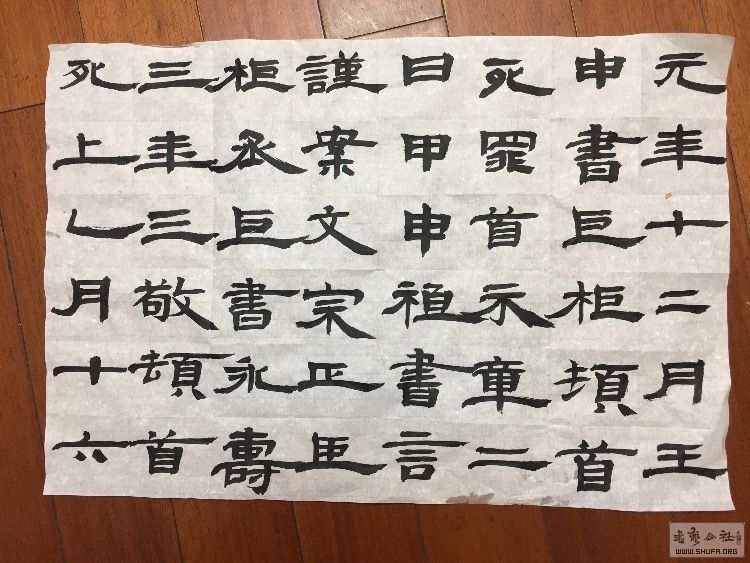 元年十二月王
申書臣柜頓首
死罪首示章二
日甲申祖書言
謹案文宗正臣
柜丞臣書永壽
三年三敬頓首
死上乙月十六
書藝公社
WWW.SHUFA.ORG